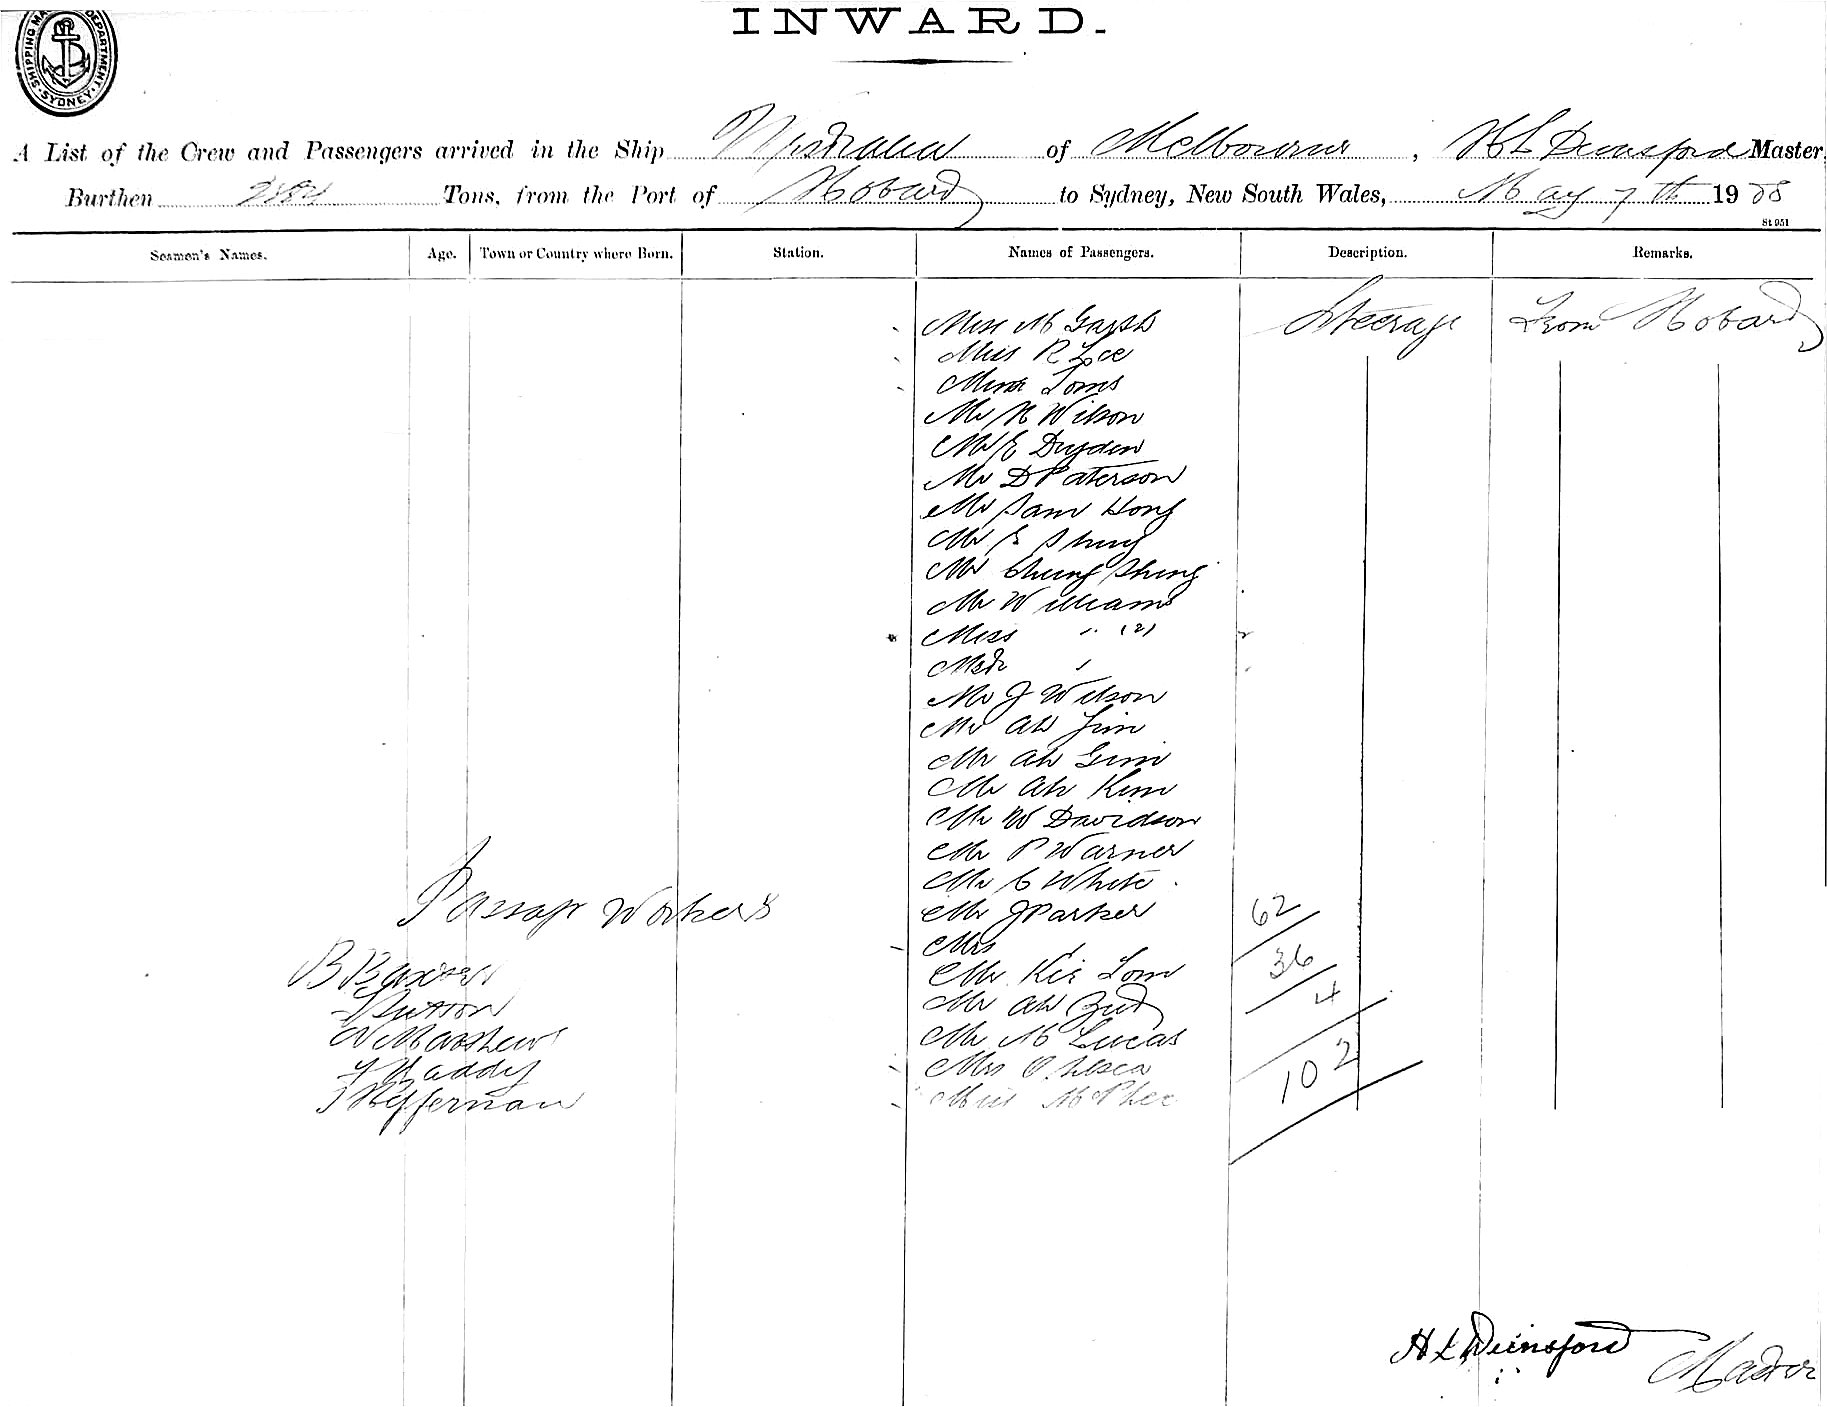 INWARD.
SHIPPING DEPARTMENT SYDNEY
A List of the Crew and Passengers arrived in the Ship Westralia of Melbourne, H L Dunsford Master,
Burthen 2884 Tons, from the Port of Hobart to Sydney, New South Wales, May 7th 1908
St 951
Seamen's Names. Age. Town or Country where Born. Station. Names of Passengers. Description. Remarks.
Miss M Steerage From Hobart
Miss R Lee
Toms
Mr Wilson
Mr E Dryden
Mr D Paterson
Mr Sam Hong
Mr Shing
Mr Chung Shing
Mr Williams
Miss " (2)
Mstr "
Mr J Wilson
Mr Ah Jim
Mr Ah Gim
Mr Ah Kim
Mr W Davidson
Mr P Warner
Mr C White
Passage Workers
Mr J Parker 62
Mrs " 36
B Baxter Mr Kir Lom
Sutton Mr Ah 4
Matthews Mr M Lucas
Gaddy Mrs O'Shea 102
J Heffernan Miss McPhee
H L Dunsford Master